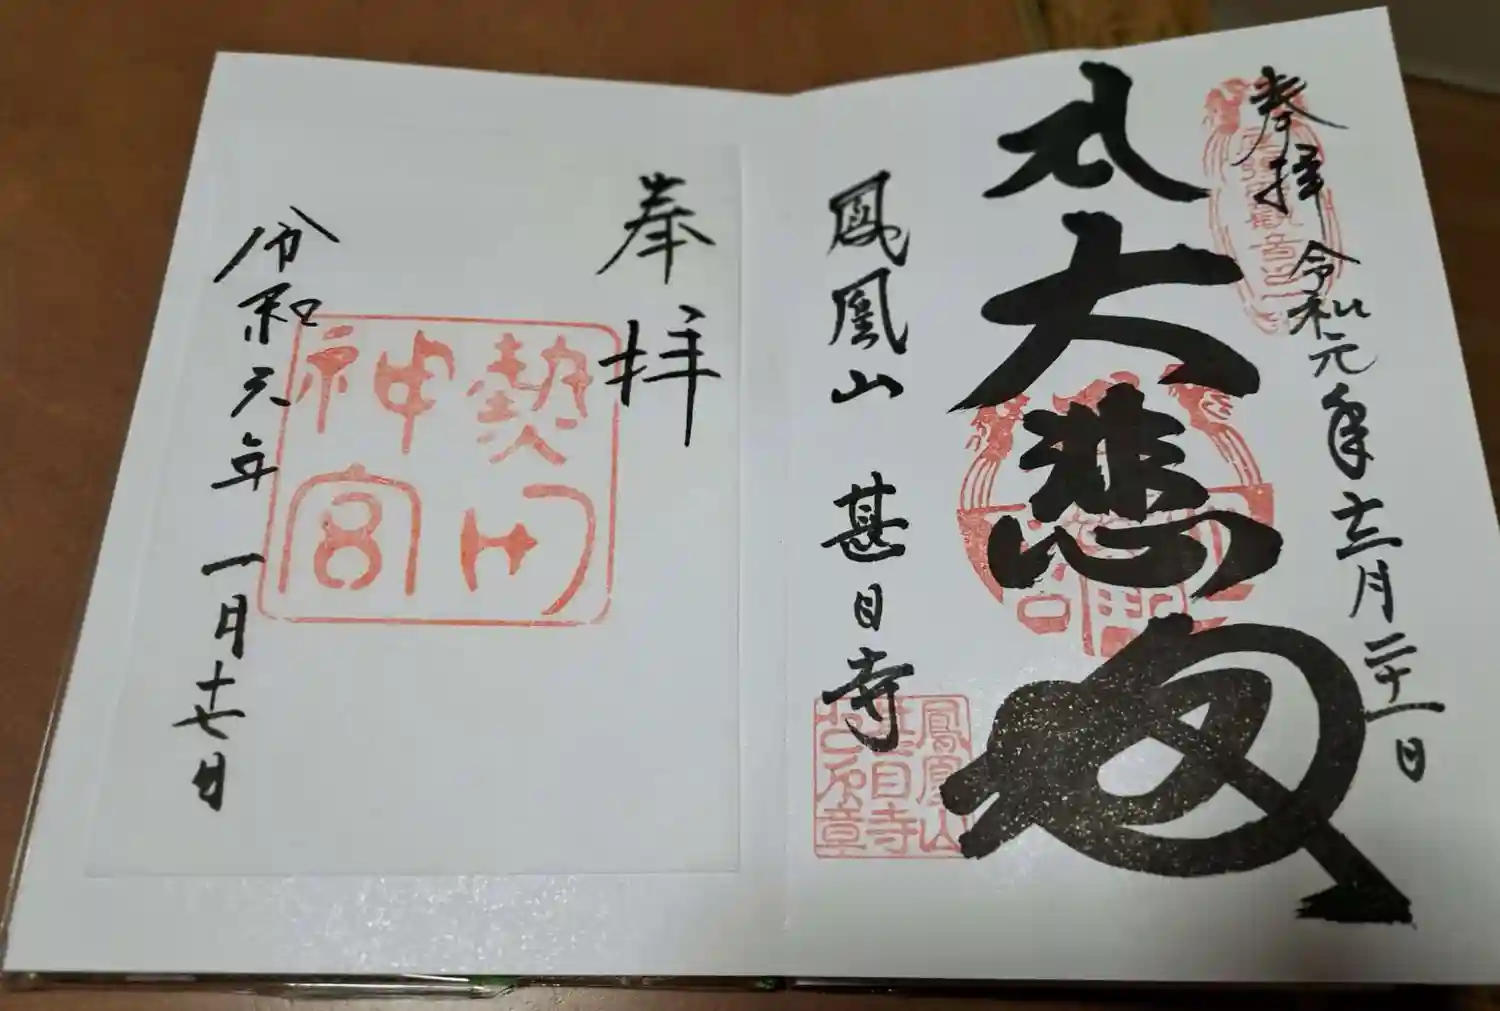 奉拝 令和元年十二月二十一日
大悲
鳳凰山 甚目寺
鳳凰山
甚目寺
奉拝
熱田
神宮
令和元年 一月十七日